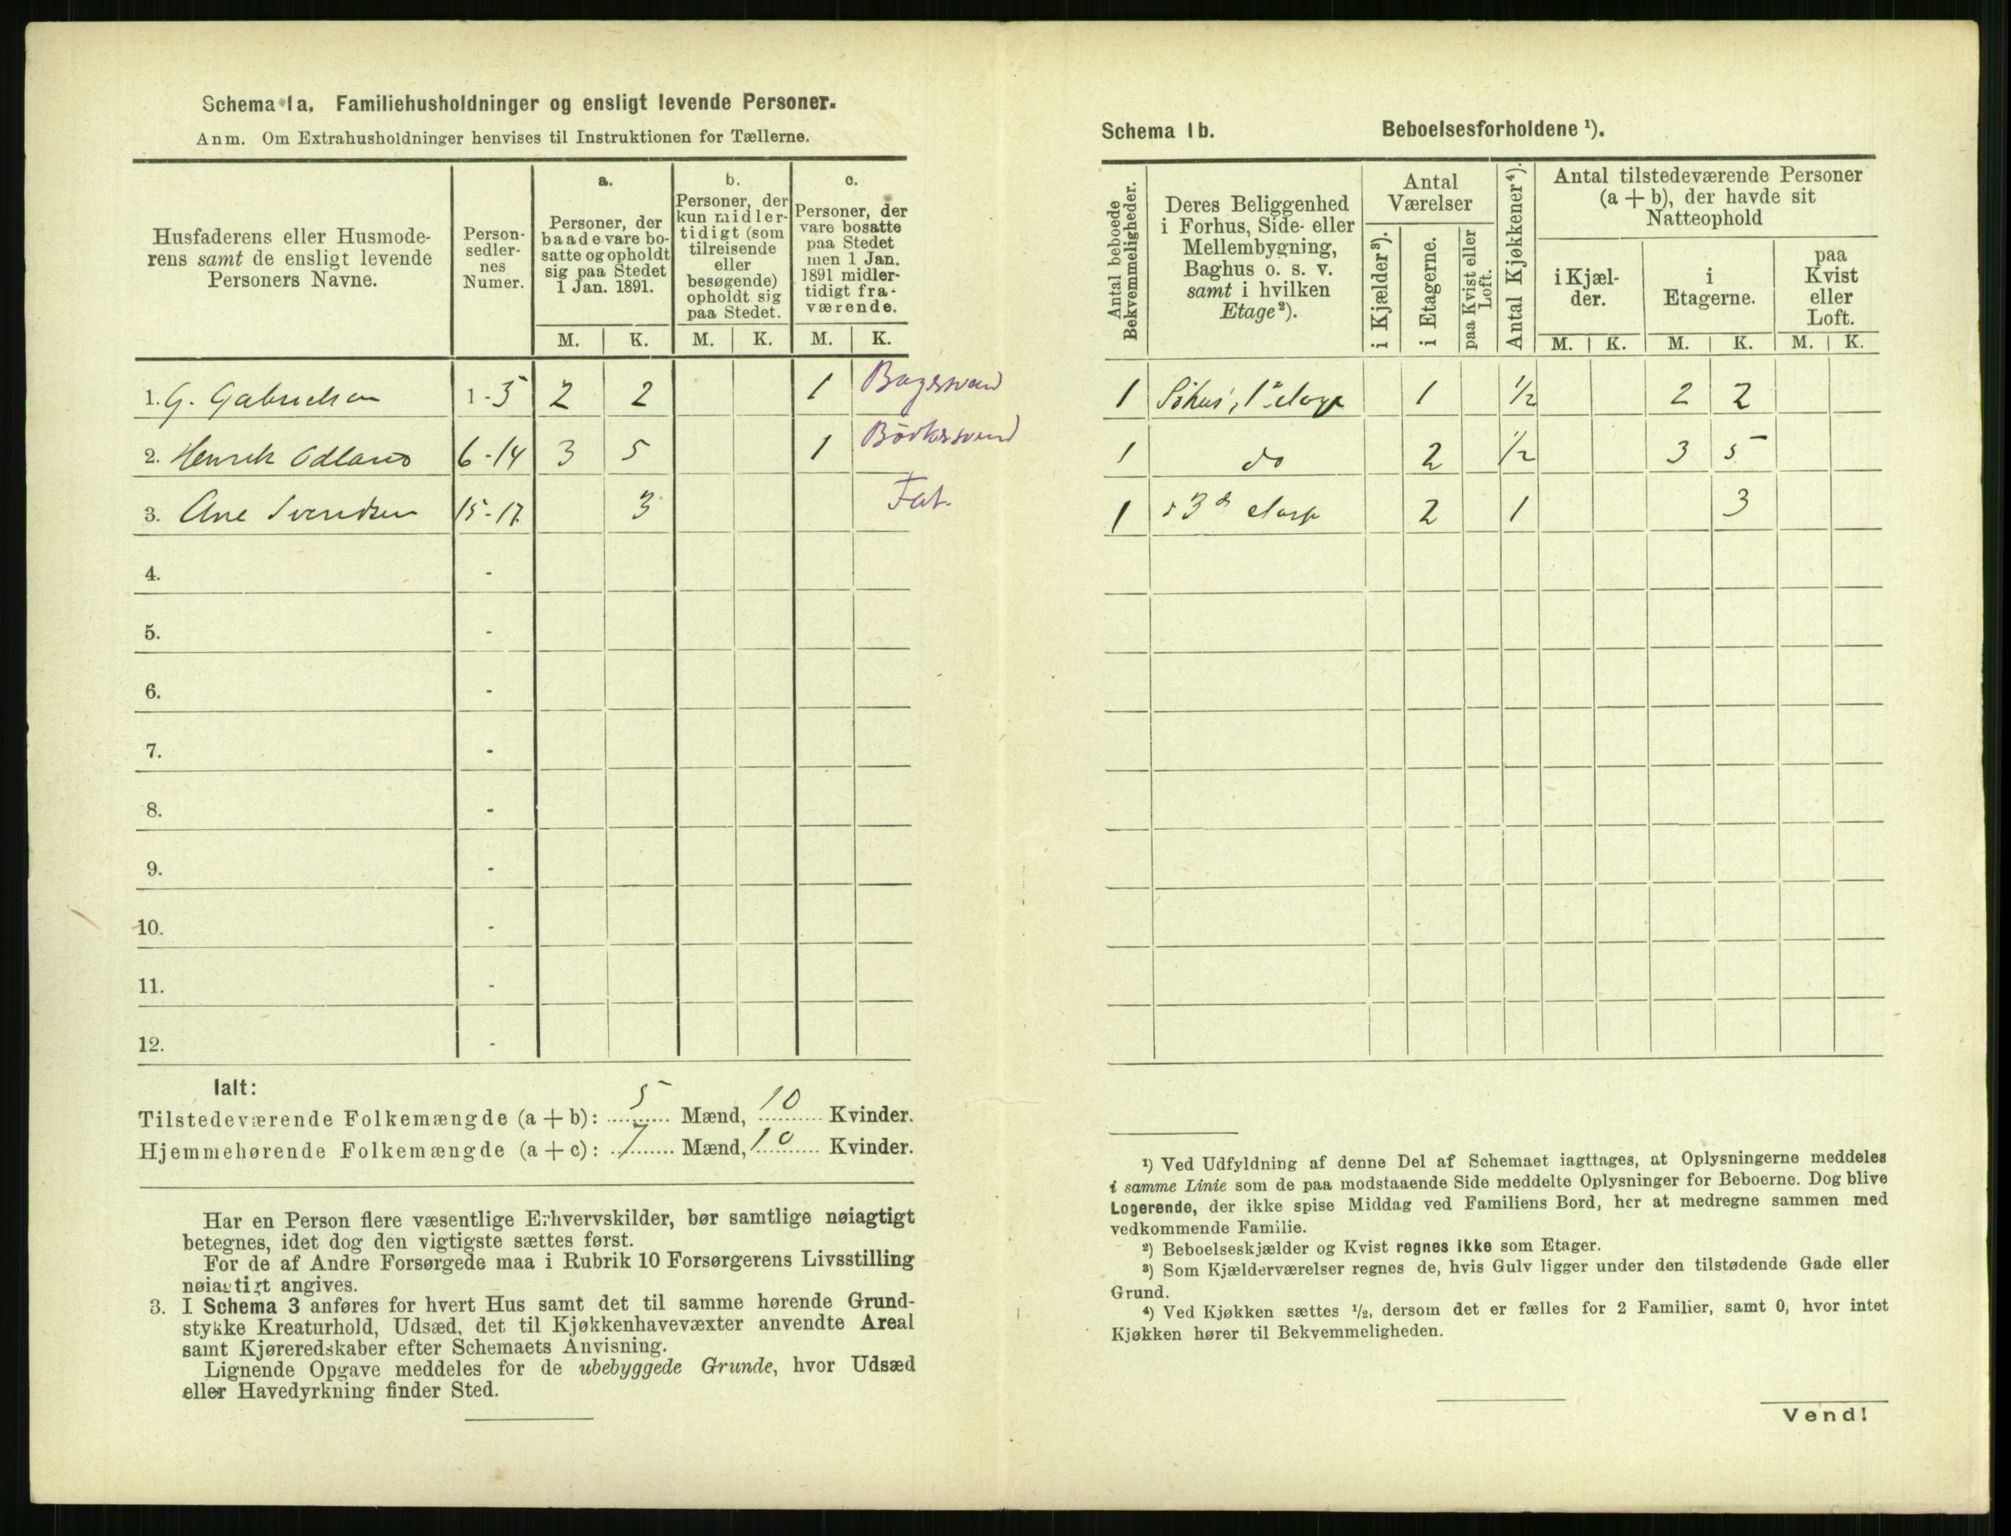 Schema 1a. Familiehusholdninger og ensligt levende Personer.
Anm. Om Extrahusholdninger henvises til Instruktionen for Tællerne.
Husfaderens eller Husmode-
rens samt de ensligt levende
Personers Navne.
Person-
sedler-
nes
Numer.
a.
Personer, der
baade vare bo-
satte og opholdt
sig paa Stedet
1 Jan. 1891.
b.
Personer, der
kun midler-
tidigt (som
tilreisende
eller
besøgende)
opholdt sig
paa Stedet.
c.
Personer, der
vare bosatte
paa Stedet
men 1 Jan.
1891 midler-
tidigt fra-
værende.
M. K. M. K. M. K.
1. G. Gabrielsen 1-5 2 2 1 Bagersvend
2. Henrik Odland 6-14 3 5 1 Bødkersvend
3. Ane Svendsen 15-17 3 Fat.
4. -
5. -
6. -
7. -
8. -
9. -
10. -
11. -
12. -
Ialt:
Tilstedeværende Folkemængde (a + b): 5 Mænd, 10 Kvinder.
Hjemmehørende Folkemængde (a + c): 7 Mænd, 10 Kvinder.
Har en Person flere væsentlige Erhvervskilder, bør samtlige nøiagtigt
betegnes, idet dog den vigtigste sættes først.
For de af Andre Forsørgede maa i Rubrik 10 Forsørgerens Livsstilling
nøiagtigt angives.
3. I Schema 3 anføres for hvert Hus samt det til samme hørende Grund-
stykke Kreaturhold, Udsæd, det til Kjøkkenhavevæxter anvendte Areal
samt Kjøreredskaber efter Schemaets Anvisning.
Lignende Opgave meddeles for de ubebyggede Grunde, hvor Udsæd
eller Havedyrkning finder Sted.
Schema 1b. Beboelsesforholdene ¹).
Antal beboede
Bekvemmeligheder.
Deres Beliggenhed
i Forhus, Side- eller
Mellembygning,
Baghus o. s. v.
samt i hvilken
Etage ²).
Antal
Værelser
i Kjælder ³).
i Etagerne.
paa Kvist eller
Loft.
Antal Kjøkkener ⁴).
Antal tilstedeværende Personer
(a + b), der havde sit
Natteophold
i Kjæl-
der.
i
Etagerne.
paa
Kvist
eller
Loft.
M. K. M. K. M. K.
1 Söhus, 1ᵉ etage 1 ½ 2 2
1 do 2 ½ 3 5
1 " 3ᵈ etage 2 1 3
¹) Ved Udfyldning af denne Del af Schemaet iagttages, at Oplysningerne meddeles
i samme Linie som de paa modstaaende Side meddelte Oplysninger for Beboerne. Dog blive
Logerende, der ikke spise Middag ved Familiens Bord, her at medregne sammen med
vedkommende Familie.
²) Beboelseskjælder og Kvist regnes ikke som Etager.
³) Som Kjælderværelser regnes de, hvis Gulv ligger under den tilstødende Gade eller
Grund.
⁴) Ved Kjøkken sættes ½, dersom det er fælles for 2 Familier, samt 0, hvor intet
Kjøkken hører til Bekvemmeligheden.
Vend!